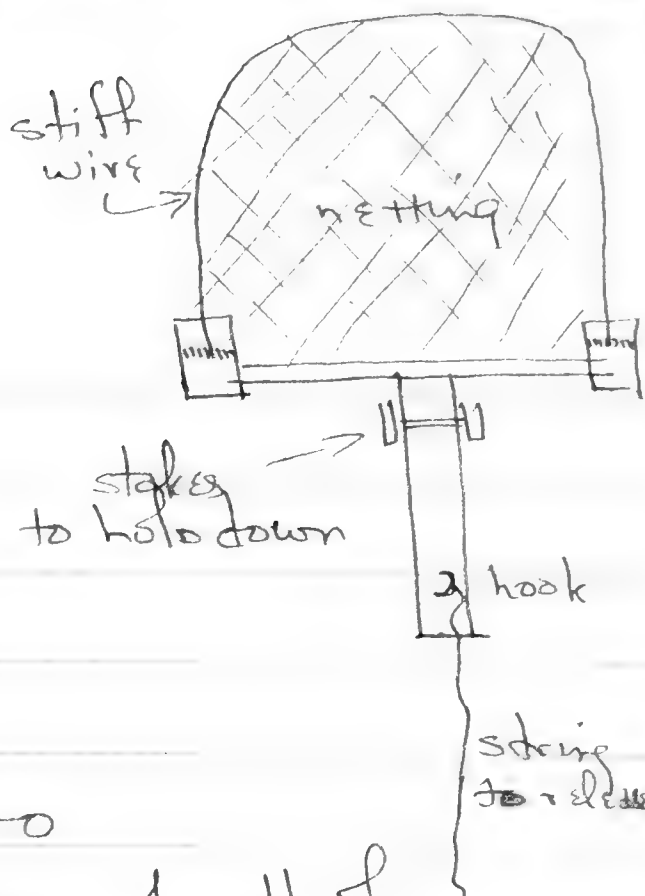 stiff
wire
netting
stakes
to hold down
hook
string
to